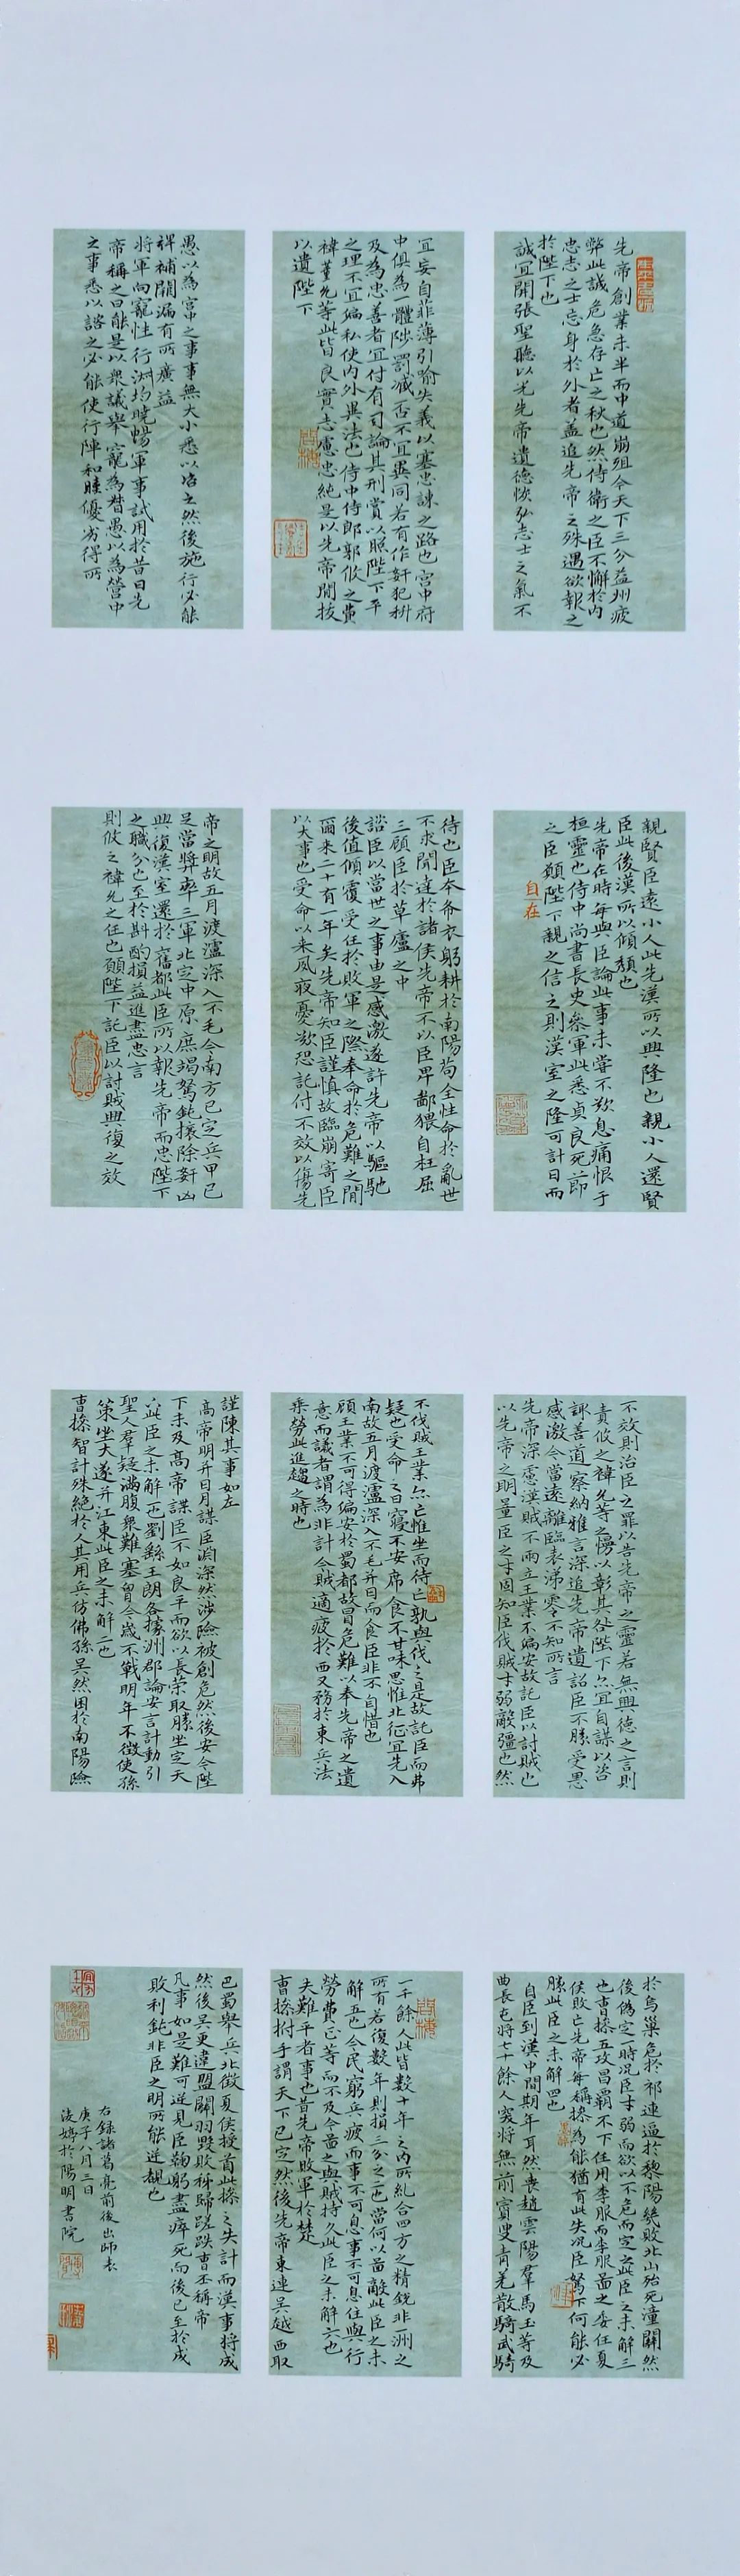 先帝創業未半而中道崩殂今天下三分益州疲
弊此誠危急存亡之秋也然侍衛之臣不懈於內
忠志之士忘身於外者蓋追先帝之殊遇欲報之
於陛下也
誠宜開張聖聽以光先帝遺德恢弘志士之氣不
宜妄自菲薄引喻失義以塞忠諫之路也宮中府
中俱為一體陟罰臧否不宜異同若有作奸犯科
及為忠善者宜付有司論其刑賞以照陛下平
之理不宜偏私使內外異法也侍中侍郎郭攸之費
禕董允等此皆良實志慮忠純是以先帝簡拔
以遺陛下
愚以為宮中之事事無大小悉以咨之然後施行必能
裨補闕漏有所廣益
將軍向寵性行淑均曉暢軍事試用於昔日先
帝稱之曰能是以眾議舉寵為督愚以為營中
之事悉以諮之必能使行陣和睦優劣得所
親賢臣遠小人此先漢所以興隆也親小人遠賢
臣此後漢所以傾頹也
先帝在時每與臣論此事未嘗不歎息痛恨于
桓靈也侍中尚書長史參軍此悉貞良死節
之臣願陛下親之信之則漢室之隆可計日而
自在
待也臣本布衣躬耕於南陽苟全性命於亂世
不求聞達於諸侯先帝不以臣卑鄙猥自枉屈
三顧臣於草廬之中
諮臣以當世之事由是感激遂許先帝以驅馳
後值傾覆受任於敗軍之際奉命於危難之間
爾來二十有一年矣先帝知臣謹慎故臨崩寄臣
以大事也受命以來夙夜憂歎恐託付不效以傷先
帝之明故五月渡瀘深入不毛今南方已定兵甲已
足當獎率三軍北定中原庶竭駑鈍攘除奸凶
興復漢室還於舊都此臣所以報先帝而忠陛下
之職分也至於斟酌損益進盡忠言
則攸之禕允之任也願陛下託臣以討賊興復之效
不效則治臣之罪以告先帝之靈若無興德之言則
責攸之禕允等之慢以彰其咎陛下亦宜自謀以咨
諏善道察納雅言深追先帝遺詔臣不勝受恩
感激今當遠離臨表涕零不知所言
先帝深慮漢賊不兩立王業不偏安故託臣以討賊也
以先帝之明量臣之才固知臣伐賊才弱敵彊也然
不伐賊王業亦亡惟坐而待亡孰與伐之是故託臣而弗
疑也受命之日寢不安席食不甘味思惟北征宜先入
南故五月渡瀘深入不毛并日而食臣非不自惜也
顧王業不可得偏安於蜀都故冒危難以奉先帝之遺
意而議者謂為非計今賊適疲於西又務於東兵法
乘勞此進趨之時也
謹陳其事如左
高帝明并日月謀臣淵深然涉險被創危然後安今陛
下未及高帝謀臣不如良平而欲以長策取勝坐定天
下此臣之未解一也劉繇王朗各據洲郡論安言計動引
聖人群疑滿腹眾難塞胸今歲不戰明年不徵使孫
策坐大遂并江東此臣之未解二也
曹操智計殊絕於人其用兵彷彿孫吳然困於南陽險
於烏巢危於祁連逼於黎陽幾敗北山殆死潼關然
後偽定一時況臣才弱而欲以不危而定之此臣之未解三
也曹操五攻昌霸不下任用李服而李服圖之委任夏
侯敗亡先帝每稱操為能猶有此失況臣駑下何能必
勝此臣之未解四也
自臣到漢中間期年耳然喪趙雲陽群馬玉等及
曲長屯將七十餘人突將無前賨叟青羌散騎武騎
一千餘人此皆數十年之內所糾合四方之精銳非一洲之
所有若復數年則損三分之二也當何以圖敵此臣之未
解五也今民窮兵疲而事不可息事不可息住與行
勞費正等而不及今圖之與賊持久此臣之未解六也
夫難平者事也昔先帝敗軍於楚
曹操拊手謂天下已定然後先帝東連吳越西取
巴蜀舉兵北徵夏侯授首此操之失計而漢事將成
然後吳更違盟關羽毀敗秭歸蹉跌曹丕稱帝
凡事如是難可逆見臣鞠躬盡瘁死而後已至於成
敗利鈍非臣之明所能逆覩也
右錄諸葛亮前後出師表
庚子八月三日
於陽明書院